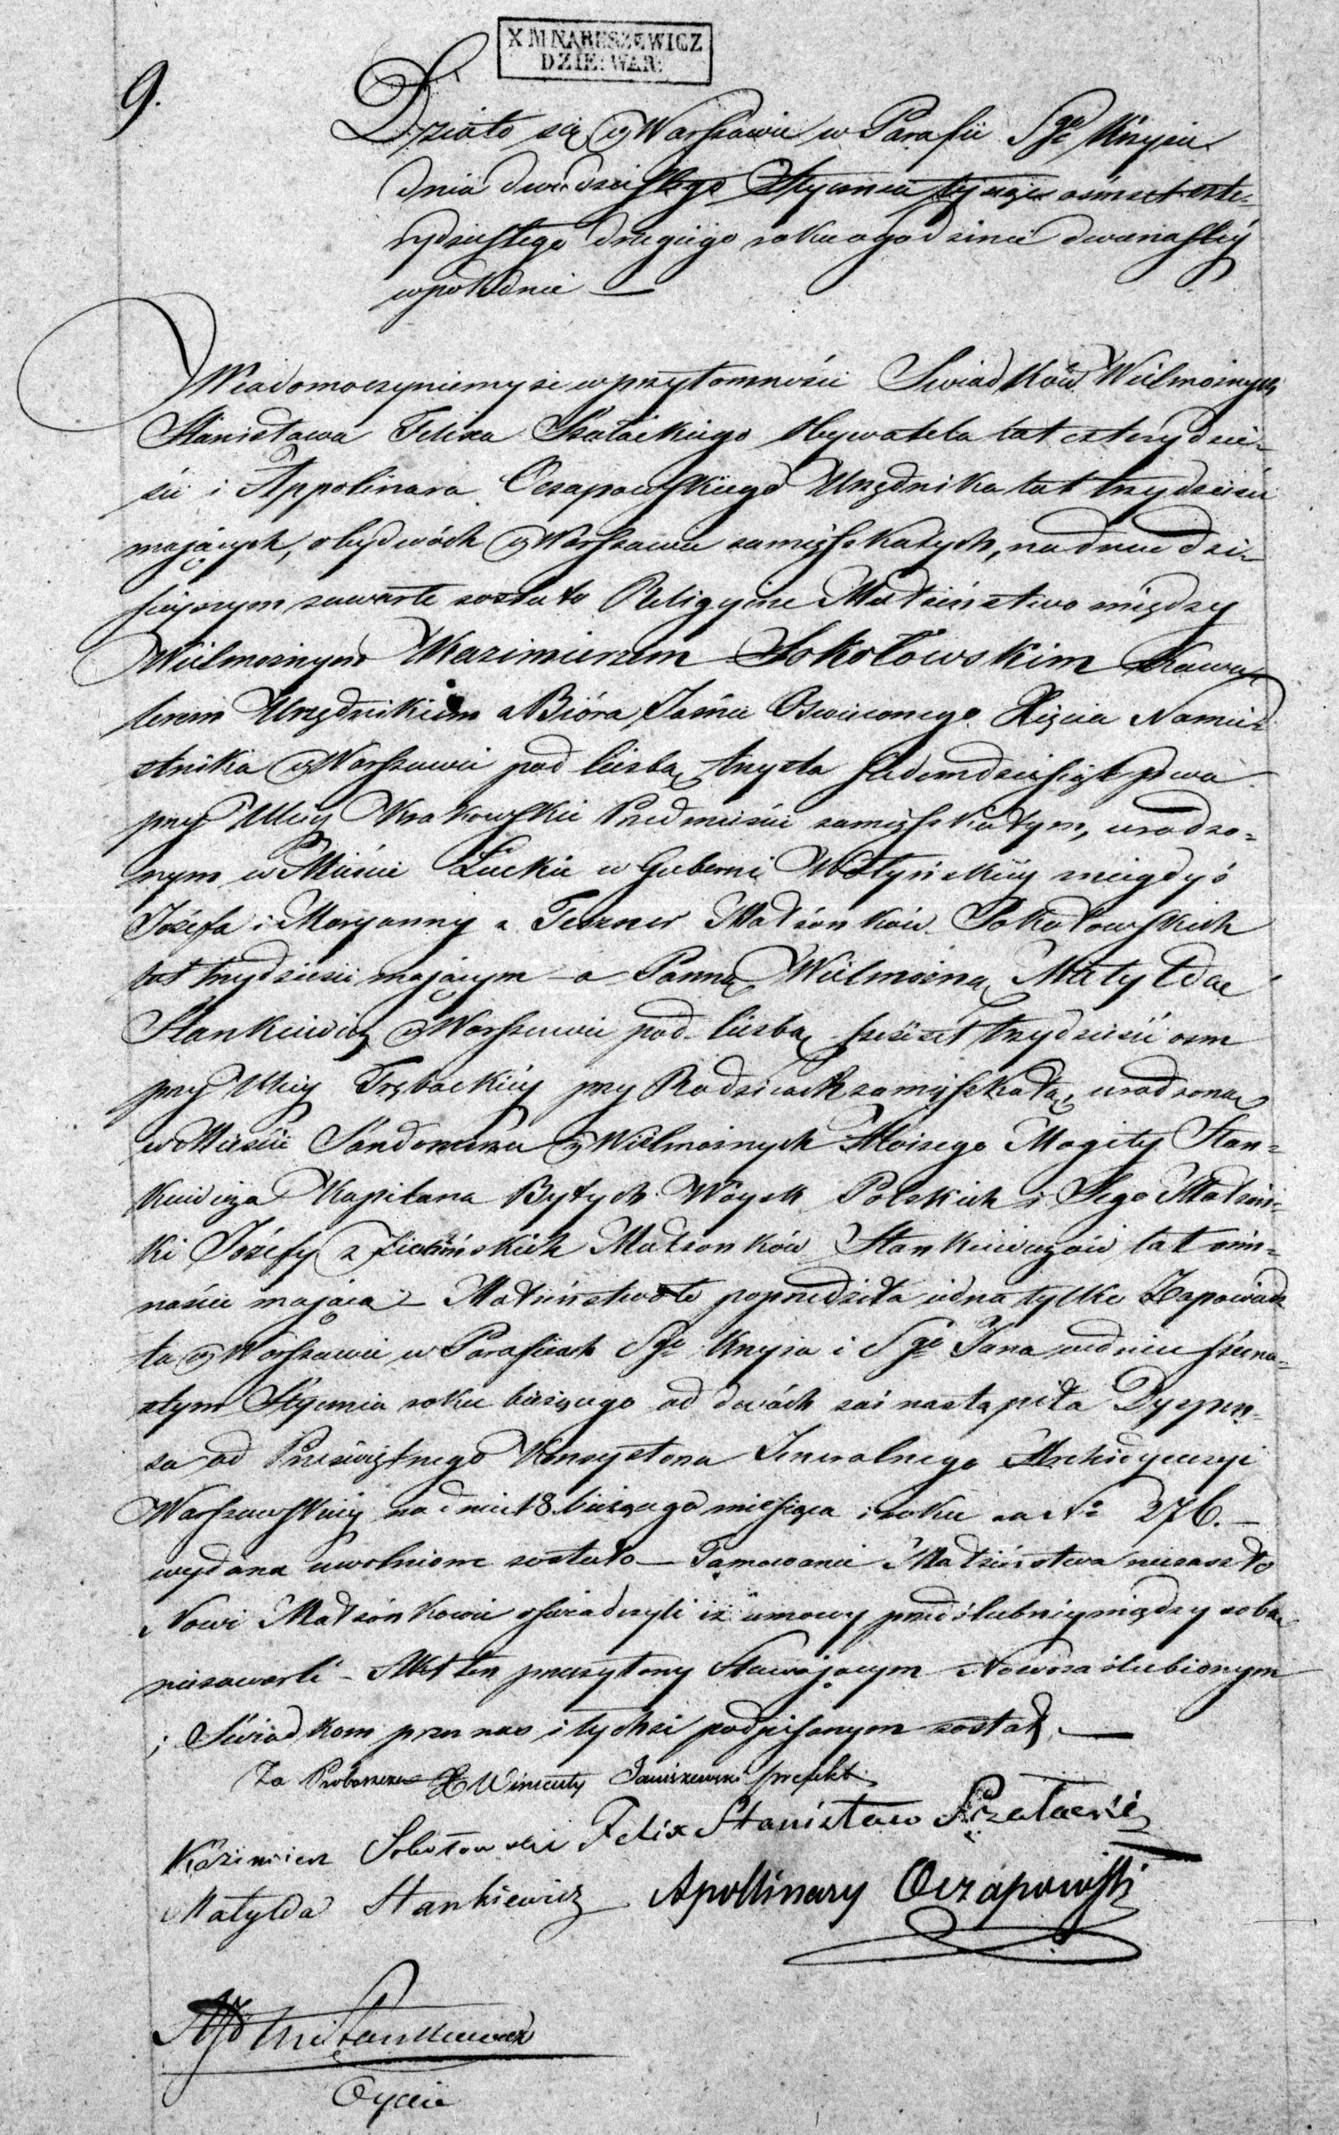 X M NARUSZEWICZ
DZIE: WAR:
9.
Działo się w Warszawie w Parafii Sgo Krzyża
dnia dwudziestego Stycznia tysiąc osmset czter-
dziestego drugiego roku o godzinie dwunastéy
w południe —
Wiadomo czyniemy że w przytomności Swiadków Wielmożnych
Stanisława Felixa Obywatela lat czterydzie-
ści i Appolinara Oczapowskiego Urzędnika lat trzydzieści
mających, obydwóch w Warszawie zamięszkałych, na dniu dzi-
siejszym zawarte zostało Religijne Małżeństwo między
Wielmożnym Kazimierzem Sokołowskim Kawa-
lerem Urzędnikiem z Bióra Jaśnie Oswieconego Xięcia Namie-
stnika w Warszawie pod liczbą trzysta siedemdziesiąt dwa
przy Ulicy Krakowskie Przedmieście zamięszkałym, urodzo-
nym w Mieście Łucku w Guberni Wołyńskiéy z niegdyś
Józefa i Maryanny z Małżonków Sokołowskich
lat trzydzieści mającym — a Panną Wielmożną Matyldą
Stankiewicz w Warszawie pod liczbą sześćset trzydzieści osm
przy Ulicy Trębackiéy przy Rodzicach zamięszkałą, urodzoną
w Mieście Sandomirzu z Wielmożnych Aloizego Stan-
kiewicza Kapitana Byłych Woysk Polskich i Jego Małżon-
ki Józefy z Małżonków Stankiewiczów lat ośm-
naście mającą — Małżeństwo te poprzedziła iedna tylko Zapowiedź
ta w Warszawie w Parafiach Sgo Krzyża i Sgo Jana w dniu szesna-
stym Stycznia roku bieżącego od dwóch zaś nastąpiła Dyspen-
sa od Prześwietnego Konsystorza Jeneralnego Archidyecezyi
Warszawskiéy na dniu 18 bieżącego miesiąca i roku za No 276. —
wydana uwolnione zostało — Tamowanie Małżeństwa niezaszło
Nowi Małżonkowie oświadczyli iż umowy przedślubnéy między sobą
niezawarli — Akt ten przeczytany Stawającym Nowozaślubionym
i Świadkom przez nas i tychże podpisanym został. —
Za Proboszcza X Wincenty Janiszewski prefekt
Kazimierz Sokołowski Felix Stanisław
Matylda Stankiewicz Apollinary Oczapowski
Stankiewicz
Oyciec